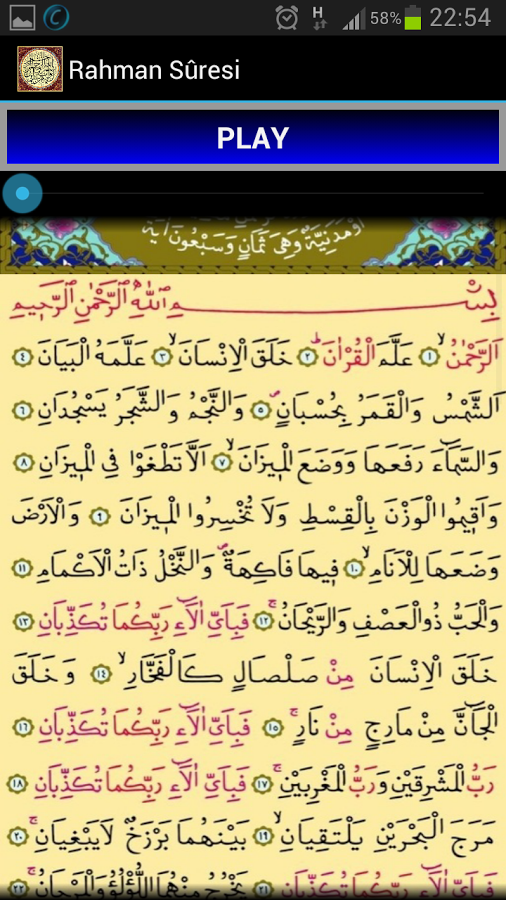 H 58% 22:54
Rahman Sûresi
PLAY
اَوْمَدَنِيَّةٌ وَهِيَ ثَمَانٍ وَسَبْعُونَ اٰيَةً
بِسْمِ اللّٰهِ الرَّحْمٰنِ الرَّحِيمِ
اَلرَّحْمٰنُۙ ﴿١﴾ عَلَّمَ الْقُرْاٰنَۜ ﴿٢﴾ خَلَقَ الْاِنْسَانَۙ ﴿٣﴾ عَلَّمَهُ الْبَيَانَ ﴿٤﴾
اَلشَّمْسُ وَالْقَمَرُ بِحُسْبَانٍۖ ﴿٥﴾ وَالنَّجْمُ وَالشَّجَرُ يَسْجُدَانِ ﴿٦﴾
وَالسَّمَٓاءَ رَفَعَهَا وَوَضَعَ الْمِيزَانَۙ ﴿٧﴾ اَلَّا تَطْغَوْا فِي الْمِيزَانِ ﴿٨﴾
وَاَقِيمُوا الْوَزْنَ بِالْقِسْطِ وَلَا تُخْسِرُوا الْمِيزَانَ ﴿٩﴾ وَالْاَرْضَ
وَضَعَهَا لِلْاَنَامِۙ ﴿١٠﴾ فِيهَا فَاكِهَةٌۖ وَالنَّخْلُ ذَاتُ الْاَكْمَامِ ﴿١١﴾
وَالْحَبُّ ذُو الْعَصْفِ وَالرَّيْحَانُۚ ﴿١٢﴾ فَبِاَيِّ اٰلَٓاءِ رَبِّكُمَا تُكَذِّبَانِ ﴿١٣﴾
خَلَقَ الْاِنْسَانَ مِنْ صَلْصَالٍ كَالْفَخَّارِۙ ﴿١٤﴾ وَخَلَقَ
الْجَٓانَّ مِنْ مَارِجٍ مِنْ نَارٍۚ ﴿١٥﴾ فَبِاَيِّ اٰلَٓاءِ رَبِّكُمَا تُكَذِّبَانِ ﴿١٦﴾
رَبُّ الْمَشْرِقَيْنِ وَرَبُّ الْمَغْرِبَيْنِۚ ﴿١٧﴾ فَبِاَيِّ اٰلَٓاءِ رَبِّكُمَا تُكَذِّبَانِ ﴿١٨﴾
مَرَجَ الْبَحْرَيْنِ يَلْتَقِيَانِۙ ﴿١٩﴾ بَيْنَهُمَا بَرْزَخٌ لَا يَبْغِيَانِۚ ﴿٢٠﴾
فَبِاَيِّ اٰلَٓاءِ رَبِّكُمَا تُكَذِّبَانِ ﴿٢١﴾ يَخْرُجُ مِنْهُمَا اللُّؤْلُؤُ وَالْمَرْجَانُۚ ﴿٢٢﴾